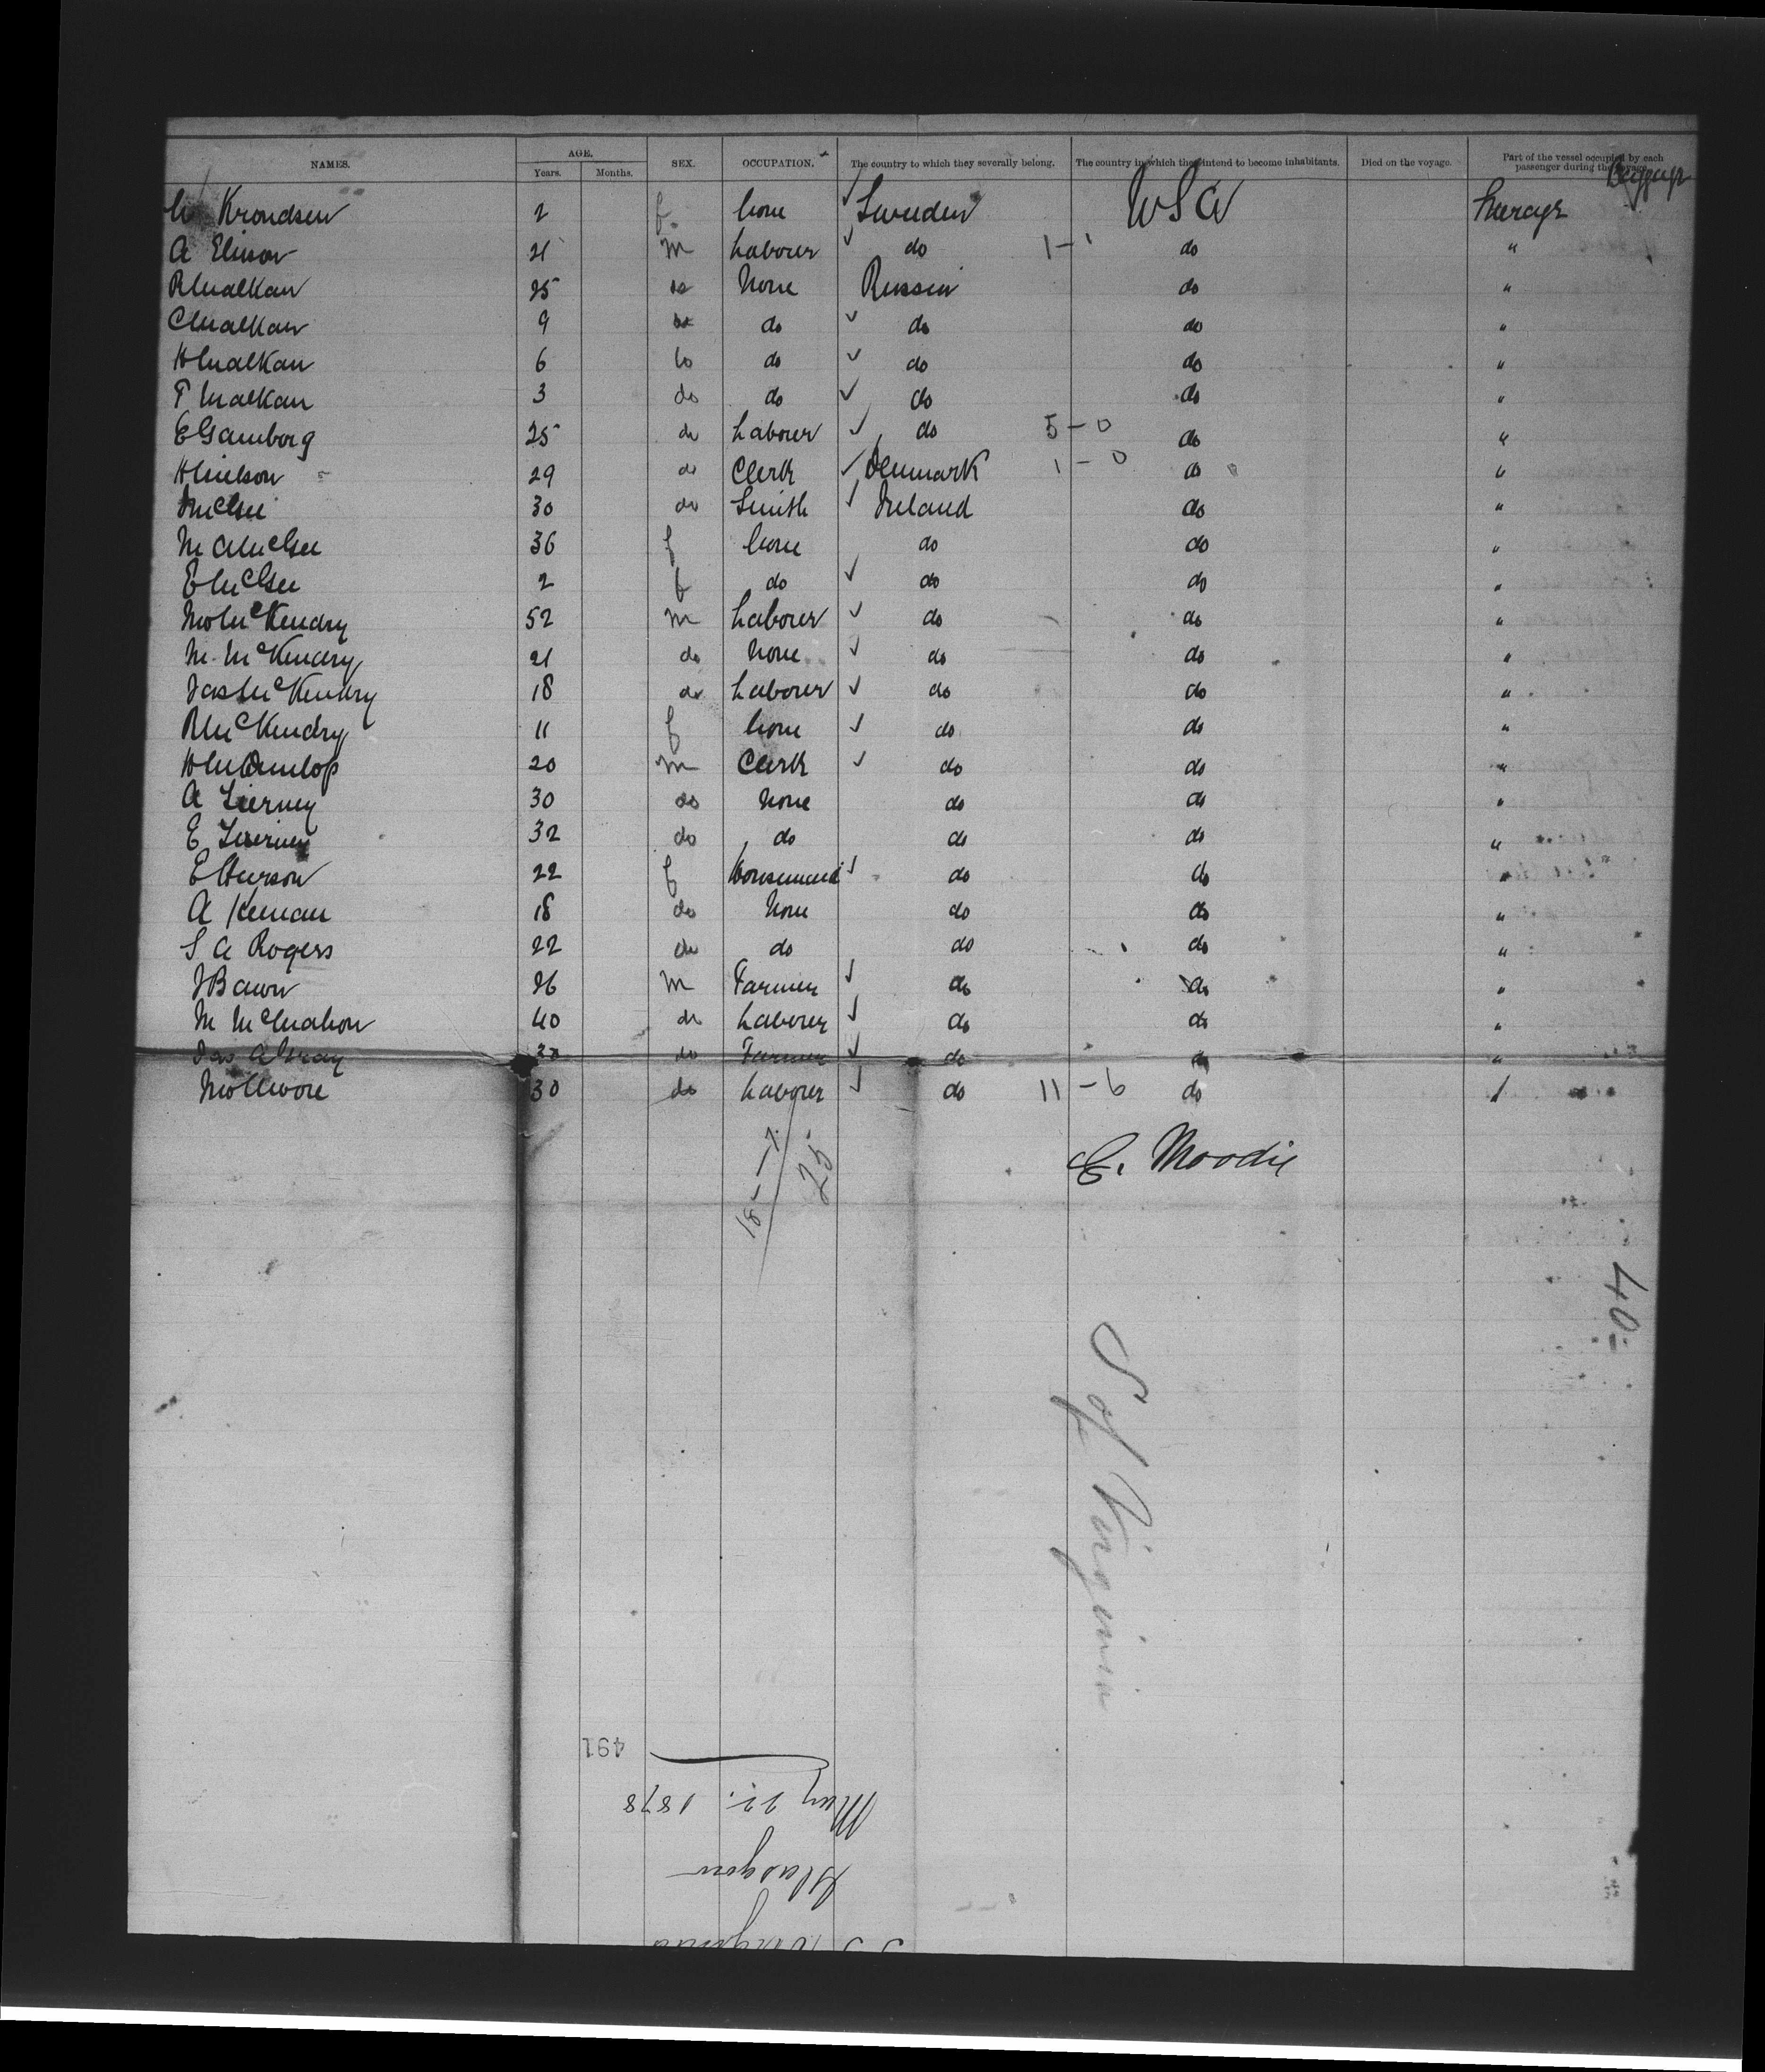 NAMES. AGE. Years. Months. SEX. OCCUPATION. The country to which they severally belong. The country in which they intend to become inhabitants. Died on the voyage. Part of the vessel occupied by each passenger during the voyage.
Baggage
Krondsen 2 f. None Sweden USA Steerage
A Elison 21 m Labourer do 1-1 do "
R Malkan 25 do None Russia do "
C Malkan 9 do do do do "
H Malkan 6 do do do do "
T Malkan 3 do do do do "
E Gamborg 25 do Labourer do 5-0 do "
H Nielson 29 do Clerk Denmark 1-0 do "
McGee 30 do Smith Ireland do "
M A McGee 36 f None do do "
E McGee 2 f do do do "
McKendry 52 m Labourer do do "
M. McKendry 21 do None do do "
Jas McKendry 18 do Labourer do do "
R McKendry 11 f None do do "
H M Dunlop 20 m Clerk do do "
A Tierney 30 do None do do "
E Tierney 32 do do do do "
E Hurson 22 f Housemaid do do "
A Kernan 18 do None do do "
S A Rogers 22 do do do do "
J Bawn 26 m Farmer do do "
M McMahon 40 do Labourer do do "
Jas A Gray 30 do Farmer do do "
Moore 30 do Labourer do 11-6 do "
18-7
25
C. Moodie
40
S of Virginia
491
May 22. 1878
Glasgow
S S Virginia